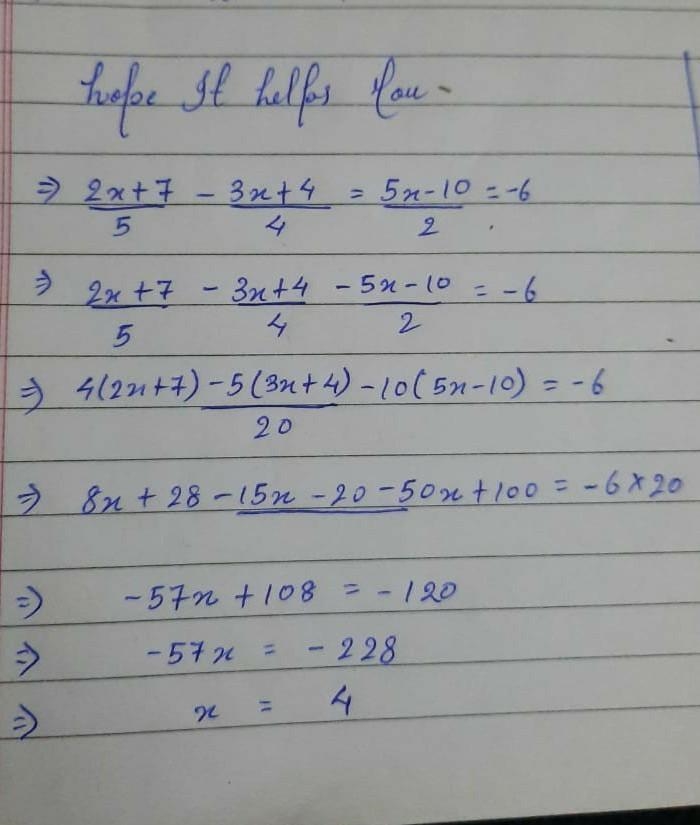 hope It helps You -
⇒ 2x+7/5 - 3x+4/4 = 5x-10/2 = -6
⇒ 2x+7/5 - 3x+4/4 - 5x-10/2 = -6
⇒ 4(2x+7) - 5(3x+4) - 10(5x-10)/20 = -6
⇒ 8x + 28 - 15x - 20 - 50x + 100 = -6 × 20
⇒ -57x + 108 = -120
⇒ -57x = -228
⇒ x = 4